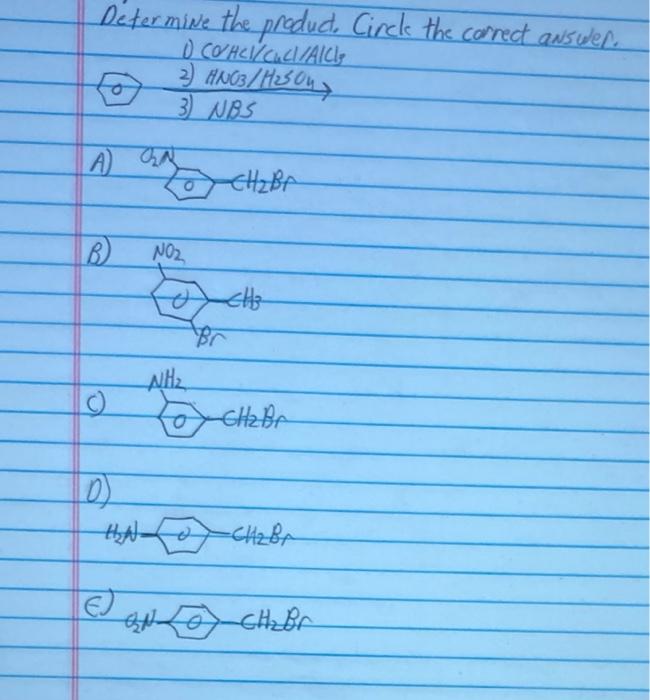 Determine the product. Circle the correct answer.
1) CO/HCl/CuCl/AlCl3
2) HNO3/H2SO4
3) NBS
A) O2N
CH2Br
B) NO2
CH3
Br
C) NH2
CH2Br
D)
H2N CH2Br
E) O2N CH2Br